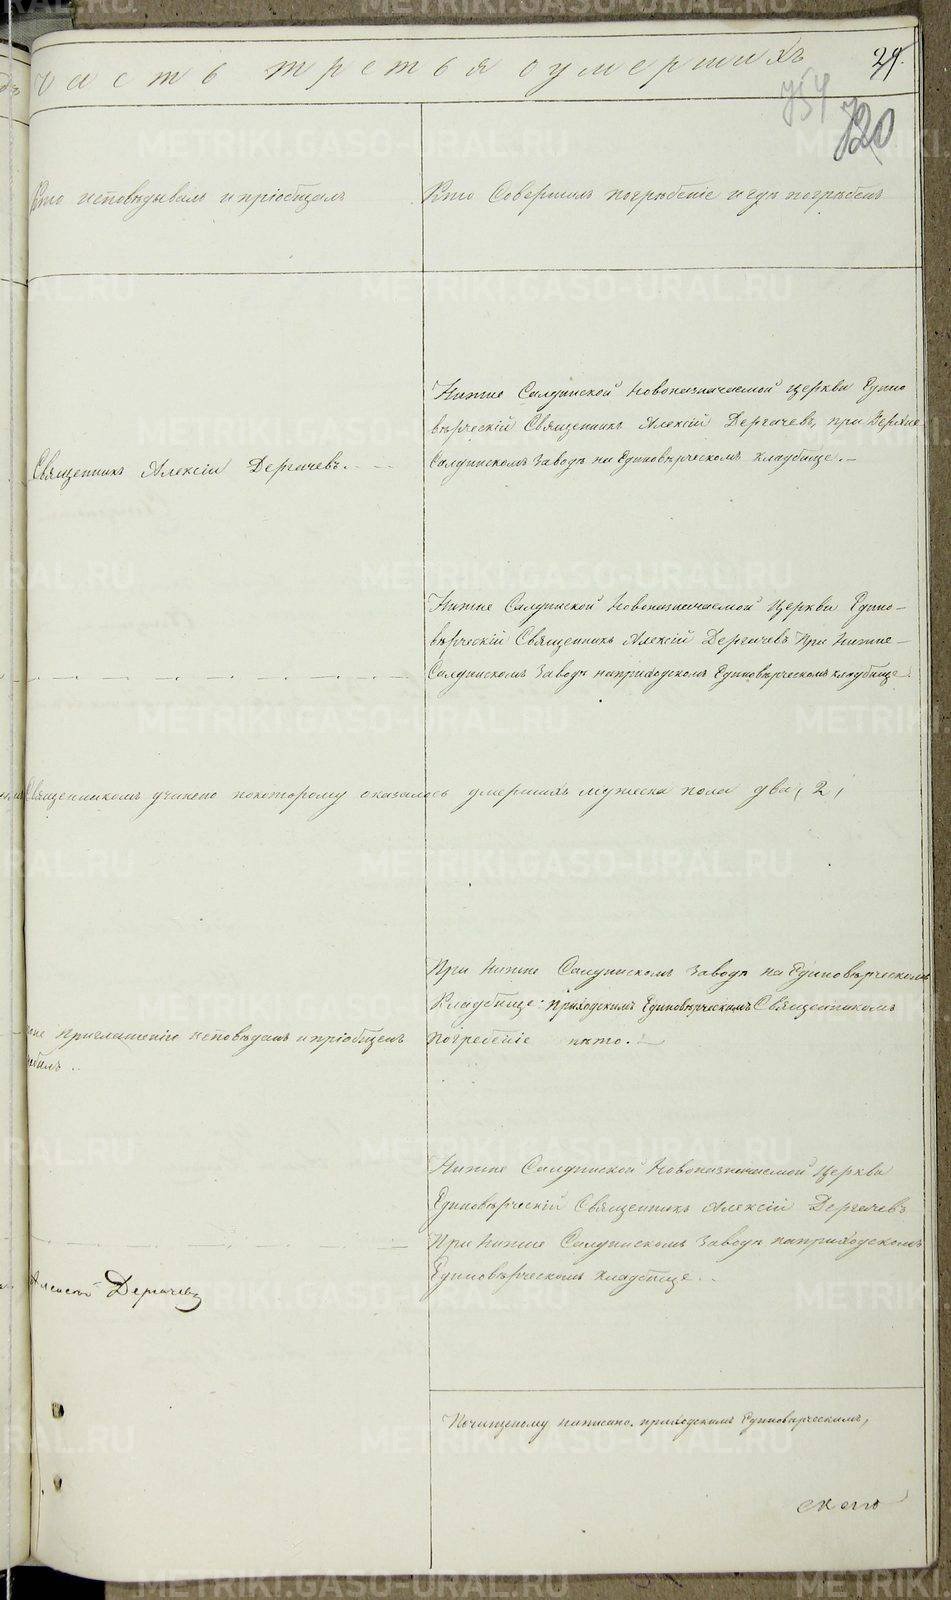 часть третья о умершихъ
29.
754
720
Кто исповѣдывалъ и пріобщалъ
Кто Совершалъ погрѣбеніе и гдѣ погрѣбенъ
Священникъ Алексій Дергачевъ.
Нижне Салдинской Новоназначаемой церкви Едино
вѣрческій Священникъ Алексій Дергачевъ, при Верхне
Салдинскомъ заводѣ на Единовѣрческомъ кладбище.
Нижне Салдинской Новоназначаемой Церкви Едино-
вѣрческій Священникъ Алексій Дергачевъ При Нижне-
Салдинскомъ Заводѣ на приходскомъ Единовѣрческомъ кладбище
Священникомъ учинено по которому оказалось умершихъ мужеска пола два, 2,
При Нижне Салдинскомъ заводѣ на Единовѣрческомъ
Кладбище: Приходскимъ Единовѣрческимъ Священникомъ
Погребеніе пѣто.
приглашенію исповѣданъ и пріобщенъ
Нижне Салдинской Новоназначаемой церкви
Единовѣрческій Священникъ Алексій Дергачевъ
При Нижне Салдинскомъ заводѣ на приходскомъ
Единовѣрческомъ кладбище.
Алексей Дергачевъ
По чищеному написано. приходскимъ Единовѣрческимъ,
METRIKI.GASO-URAL.RU